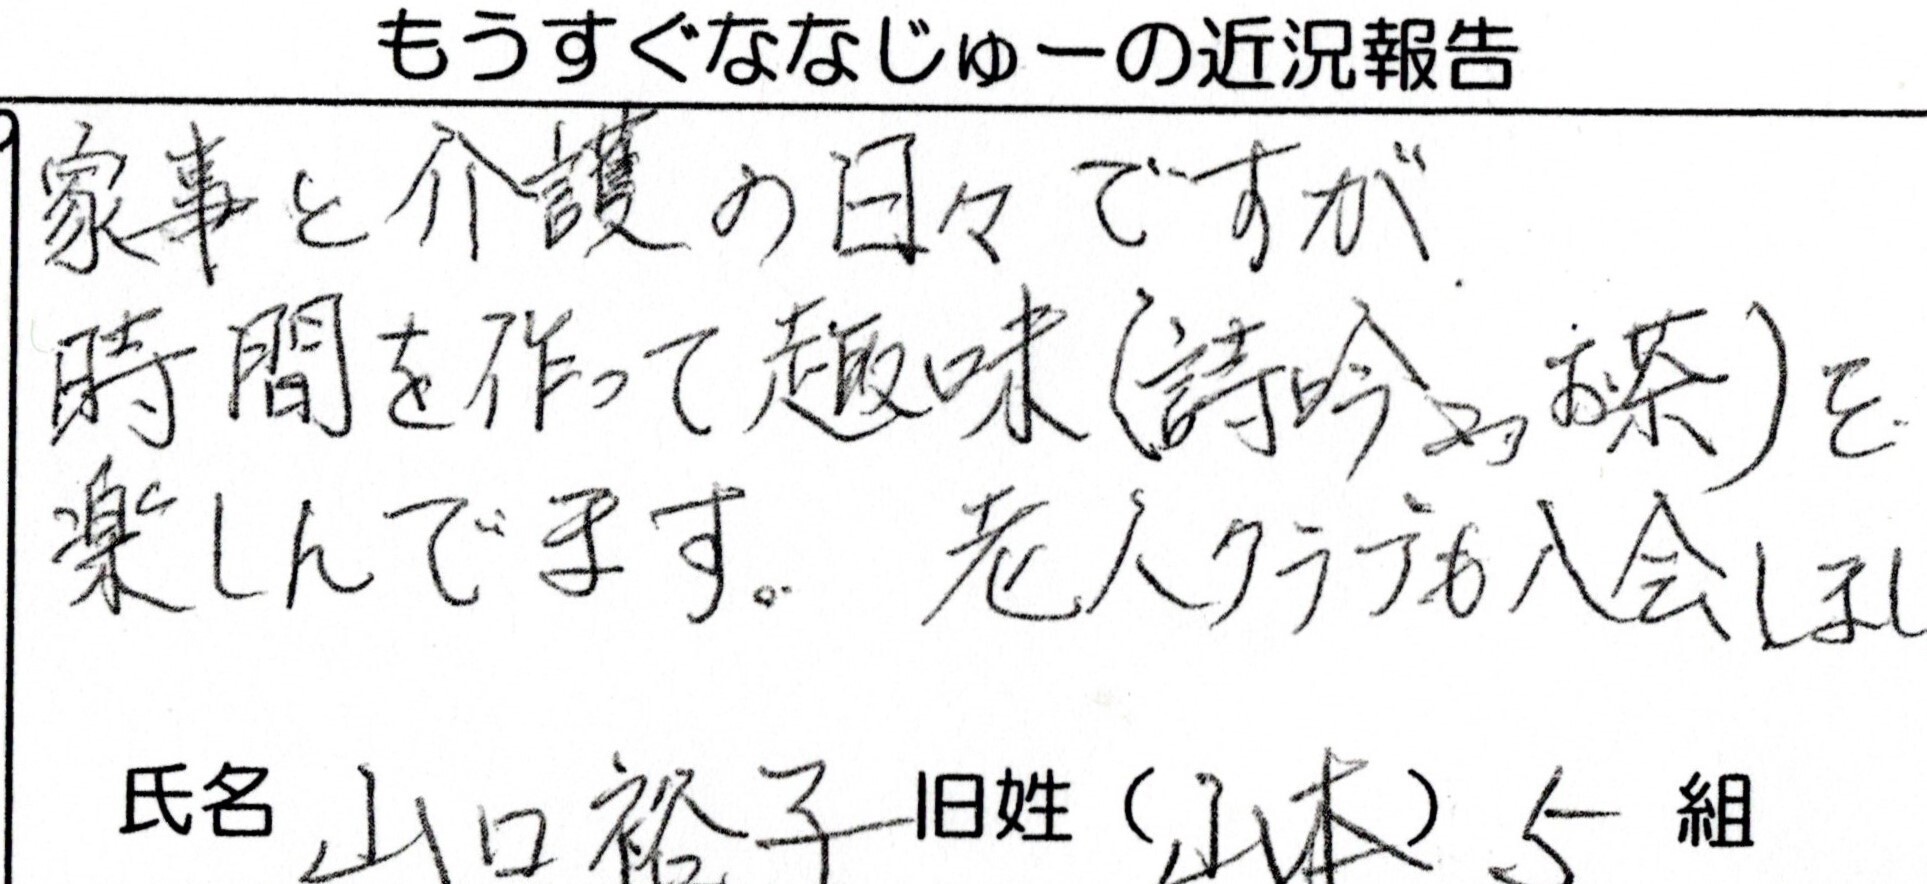 もうすぐななじゅーの近況報告
家事と介護の日々ですが
時間を作って趣味(詩吟 お茶)を
楽しんでます。 老人クラブも入会しまし
氏名 山口裕子 旧姓(山本) 5 組